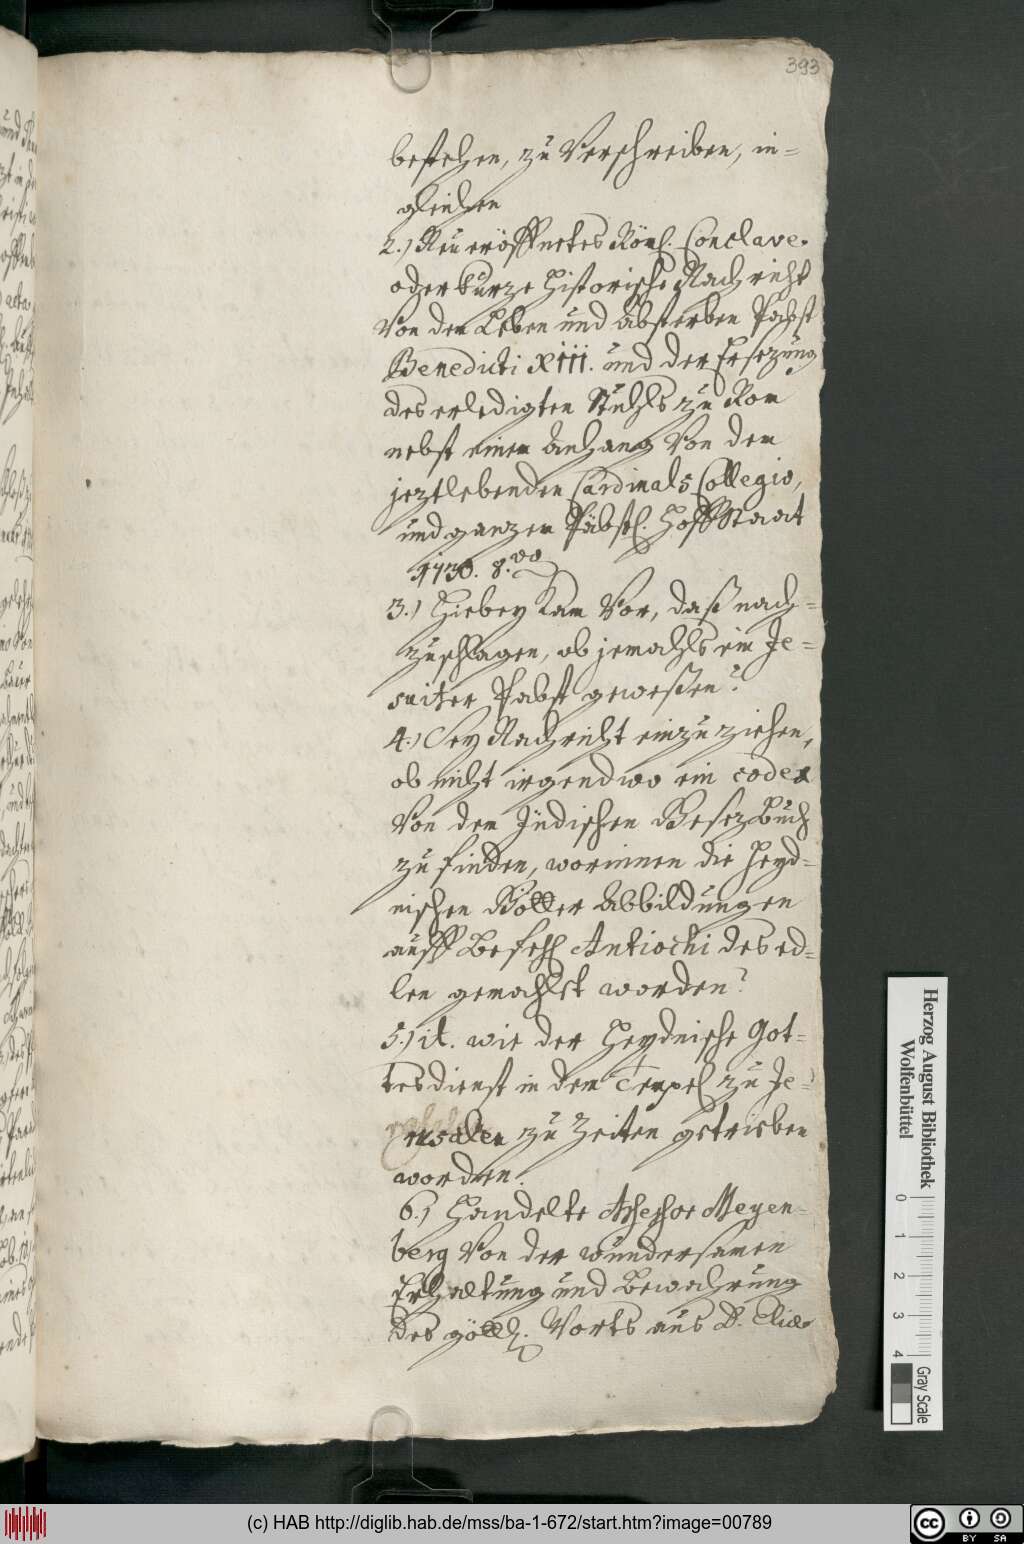 393
bestehen, zu Verschreiben, in=
gleichen
2.) Neu eröffnetes Röm. Conclave.
oder kurze Historische Nachricht
Von dem Leben und absterben Pabst
Benedicti XIII. und der Ersezung
des erledigten Stuhls zu Rom
nebst einem Anhang Von dem
jeztlebenden Cardinals Collegio,
und ganzen Päbstl. HoffStaat
1730. 8.vo
3.) Hiebey kam Vor, daß nach=
zuschlagen, ob jemahls ein Je=
suiter Pabst geweßen?
4.) Sey Nachricht einzuziehen,
ob nicht irgendwo ein codex
Von dem Jüdischen Gesezbuch
zu finden, worinnen die Heyd=
nischen Götter Abbildungen
auff Befehl Antiochi des ed=
len gemahlet worden?
5.) it. wie der Heydnische Got=
tesdienst in dem Tempel zu Je=
rusalem zu Zeiten getrieben
worden.
6.) Handelte Assessor Meyen=
berg Von der wundersamen
Erhaltung und Bewahrung
des göttl. Worts aus D. Eliae
Herzog August Bibliothek
Wolfenbüttel
0 1 2 3 4
Gray Scale
(c) HAB http://diglib.hab.de/mss/ba-1-672/start.htm?image=00789
cc BY SA